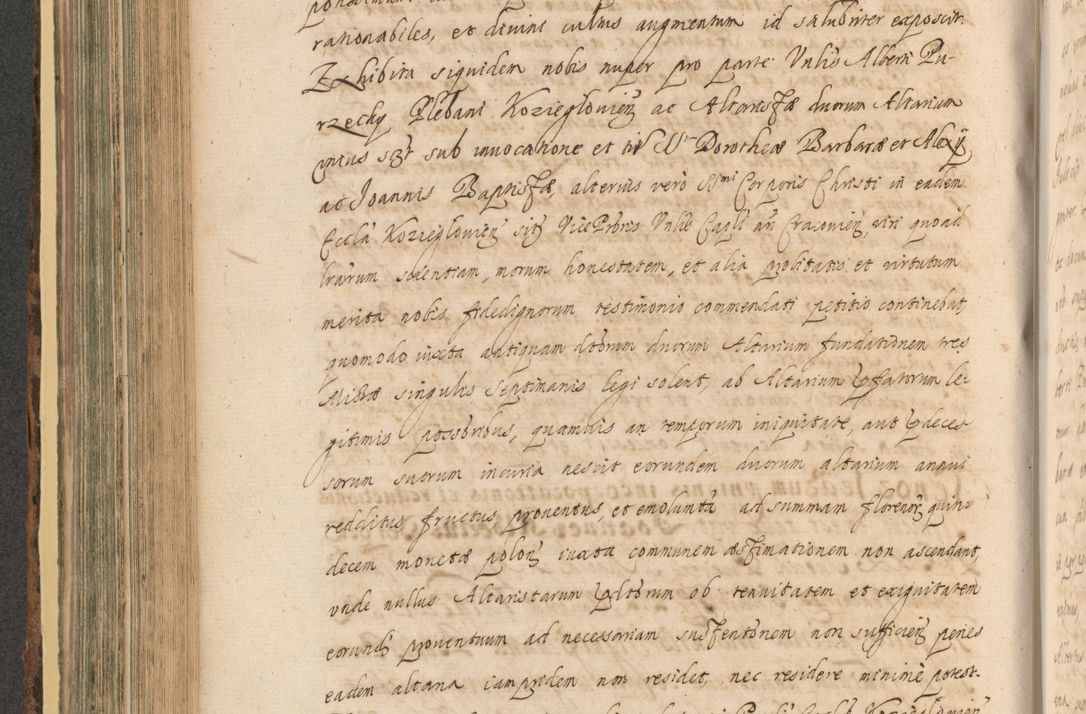 rationabiles, et divini cultus augmentum id salubriter exposcit.
Exhibita siquidem nobis nuper pro parte Vnlis Alberti Pu-
rzechy Plebani Koziegloviens ac Altaristæ duorum Altarium
unius sczt sub invocatione et titl Sae Dorotheæ Barbaræ et Alexÿ
ac Joannis Baptistæ, alterius vero SSmi Corporis Christi in eadem
Eccla Koziegloviens siti VicePbris Vnlis Capli an Cracoviens, viri quoad
lrarum scientiam, morum honestatem, et alia probitatis et virtutum
merita nobis fidedignorum testimonio commendati petitio continebat
quomodo iuxta antiquam dtorum duorum Altarium fundationem tres
Missæ singulis septimanis legi solent, ab Altarium pfatorum le-
gitimis possoribus, quamvis an temporum iniquitate, aut pdeces
sorum suorum incuria nescit eorundem duorum altarium annui
redditus fructus proventus, et emolunta ad summam florenor quin-
decem monetæ polon iuxta communem æstimationem non ascendant,
vnde nullus Altaristarum pdtorum ob tenuitatem et exiguitatem
eorund proventuum ad necessariam sustentonem non sufficien penes
eadem altaria iampridem non residet, nec residere minime potest.